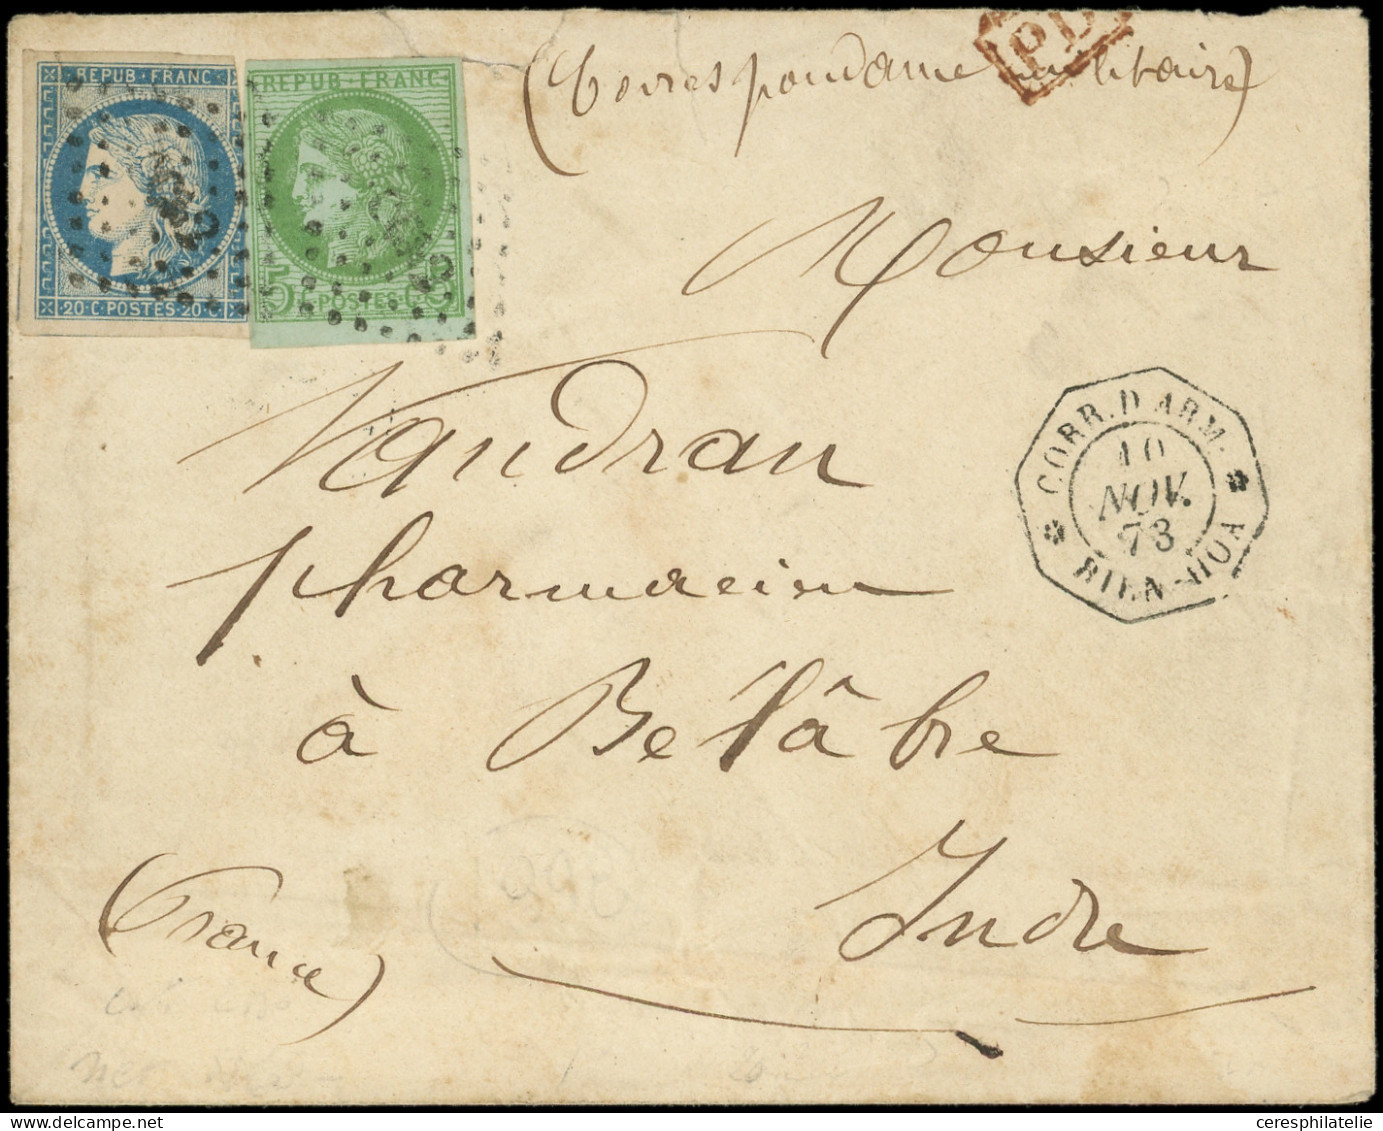 (Correspondance militaire)
PD
REPUB·FRANC
20·C·POSTES·20·C
REPUB·FRANC
5 C·POSTES·C 5
Monsieur
CORR. D ARM.
10
NOV.
73
BIEN-HOA
Vaudran
pharmacien
à Belâbre
Indre
(France)
ceresphilatelie